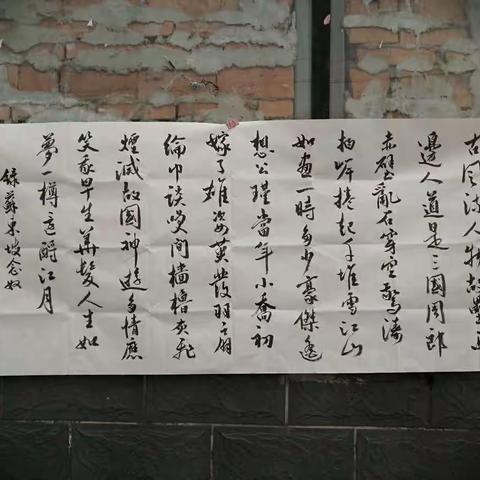 古风流人物故壘西
邊人道是三國周郎
赤壁亂石穿空驚濤
拍岸捲起千堆雪江山
如畫一時多少豪傑遙
想公瑾當年小喬初
嫁了雄姿英發羽扇
綸巾談笑間檣櫓灰飛
煙滅故國神遊多情應
笑我早生華髮人生如
夢一樽還酹江月
錄蘇東坡念奴